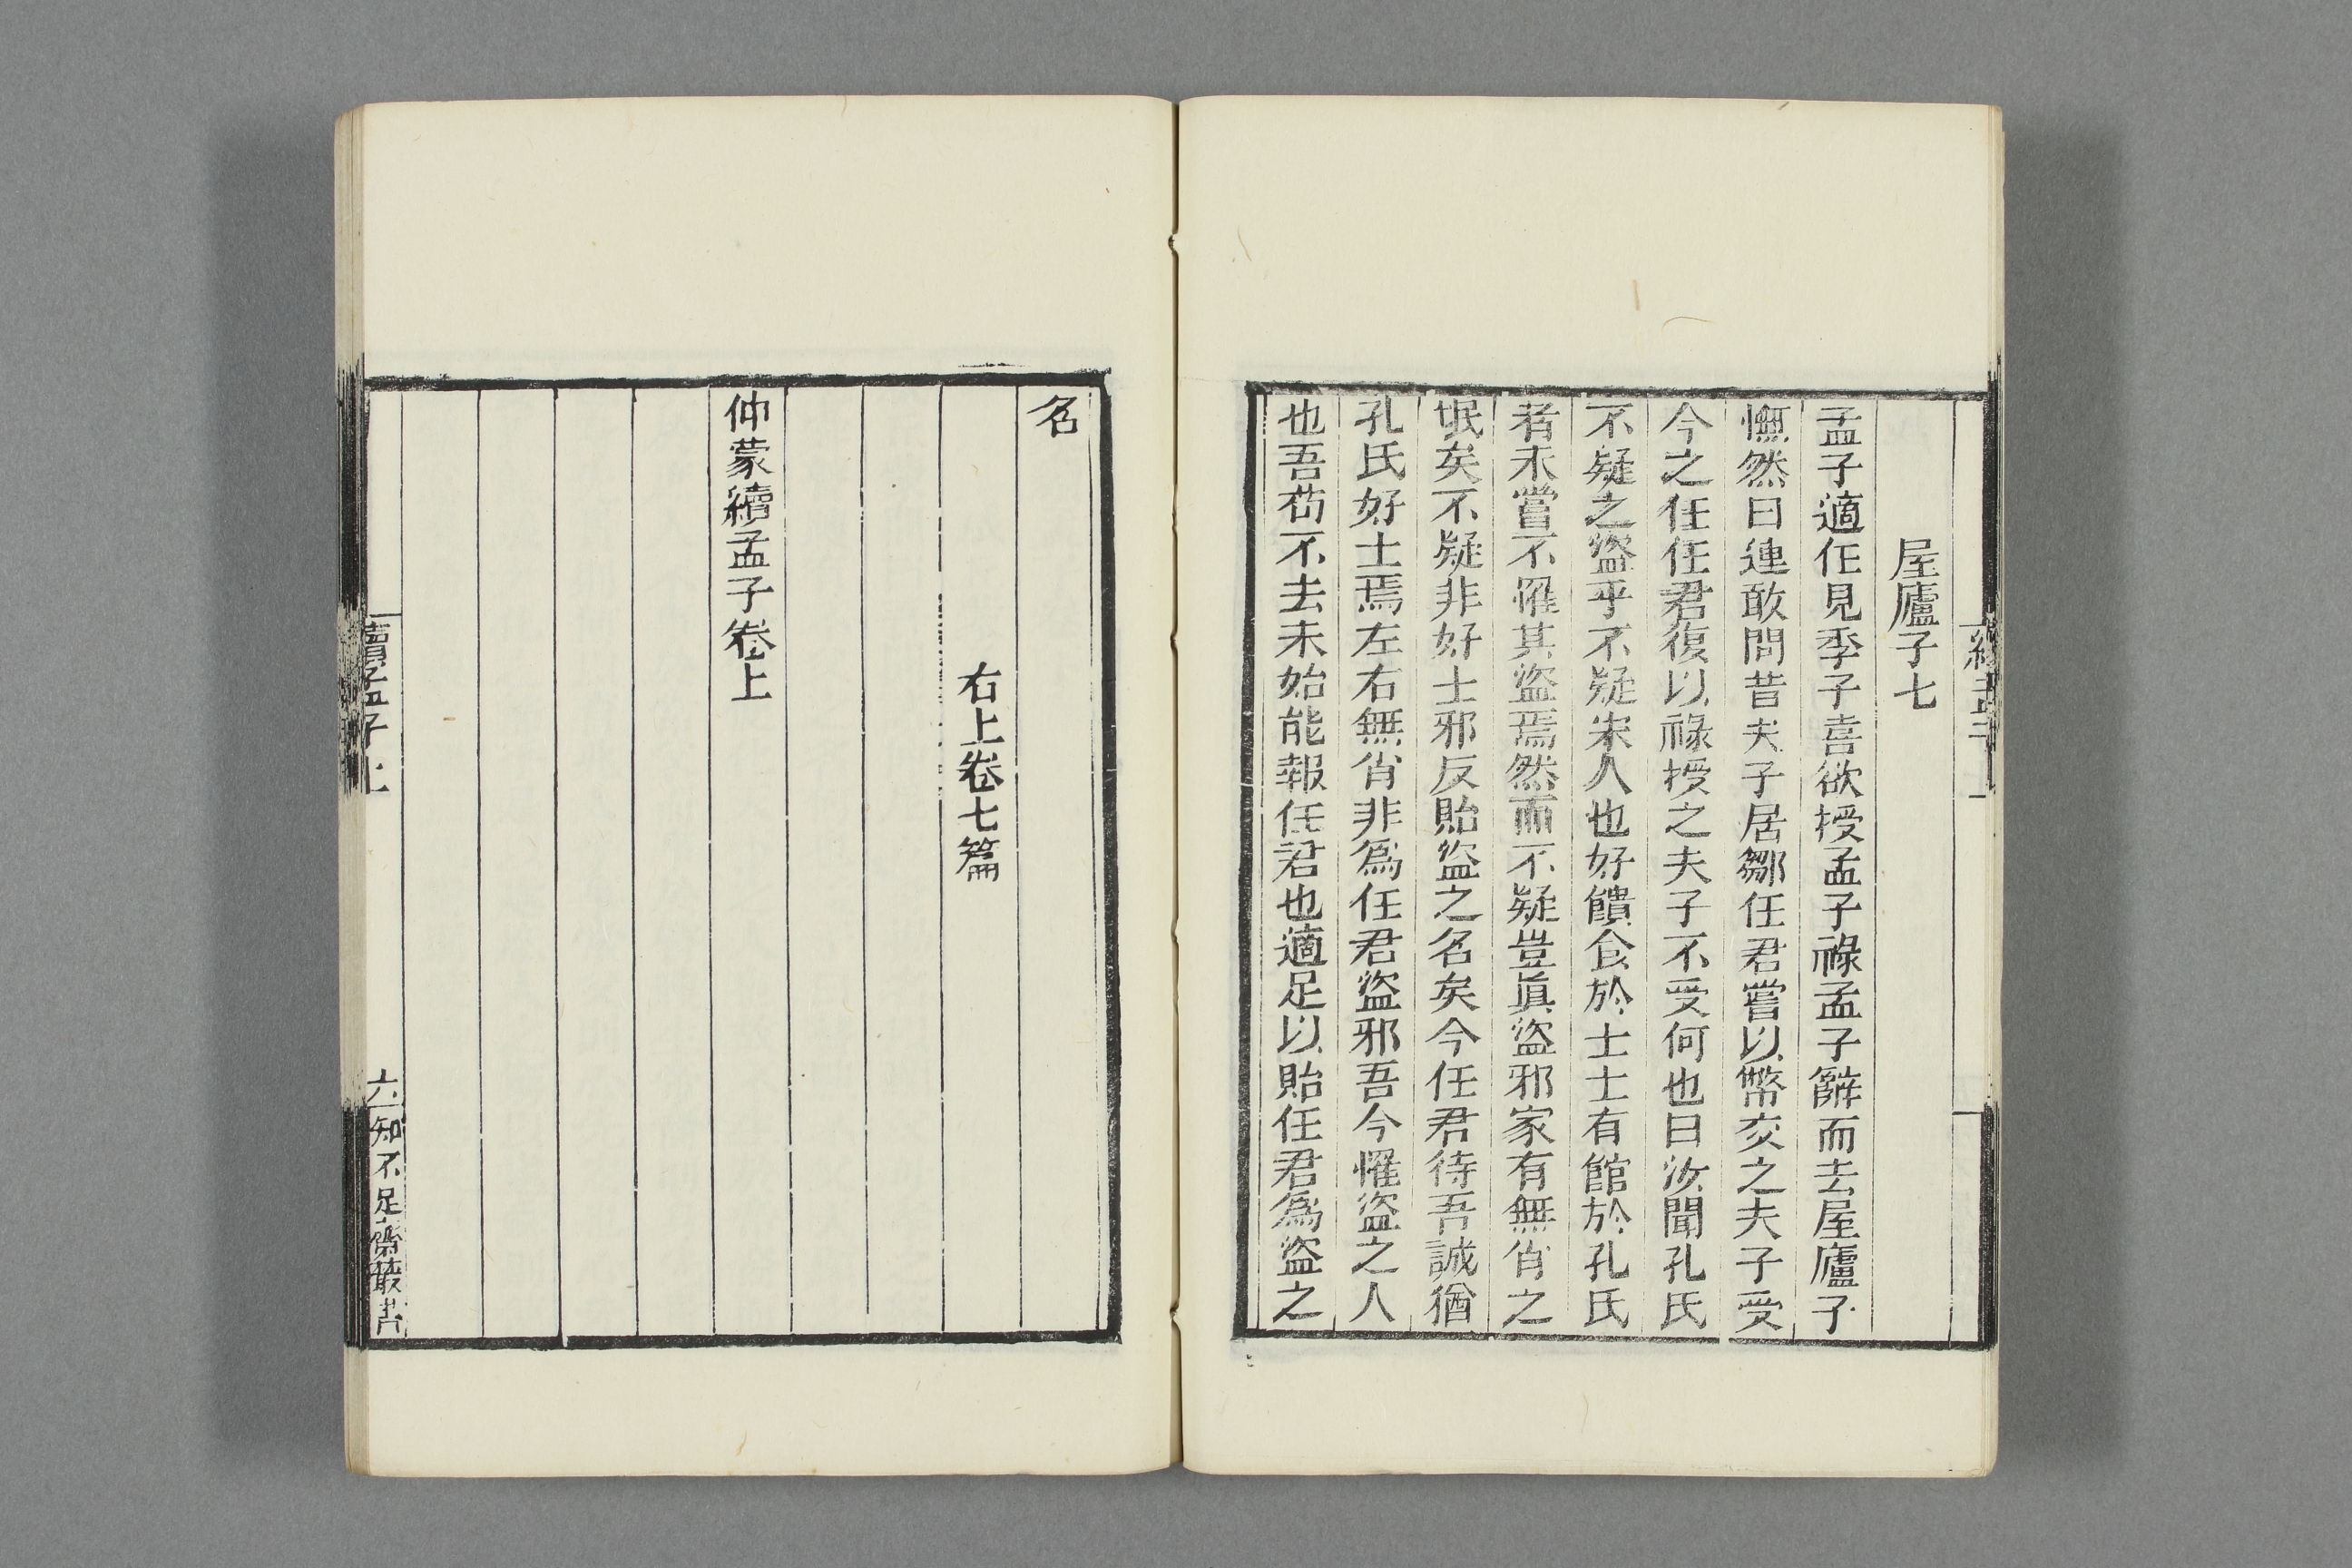 屋廬子七
孟子適任見季子喜欲授孟子祿孟子辭而去屋廬子
憮然曰連敢問昔夫子居鄒任君嘗以幣交之夫子受
今之任任君復以祿授之夫子不受何也曰汝聞孔氏
不疑之盜乎不疑宋人也好饋食於士士有館於孔氏
者未嘗不懼其盜焉然而不疑豈眞盜邪家有無肖之
氓矣不疑非好士邪反貽盜之名矣今任君待吾誠猶
孔氏好士焉左右無肖非爲任君盜邪吾今懼盜之人
也吾苟不去未始能報任君也適足以貽任君爲盜之
名
右上卷七篇
仲蒙續孟子卷上
續孟子上
六
知不足齋叢書